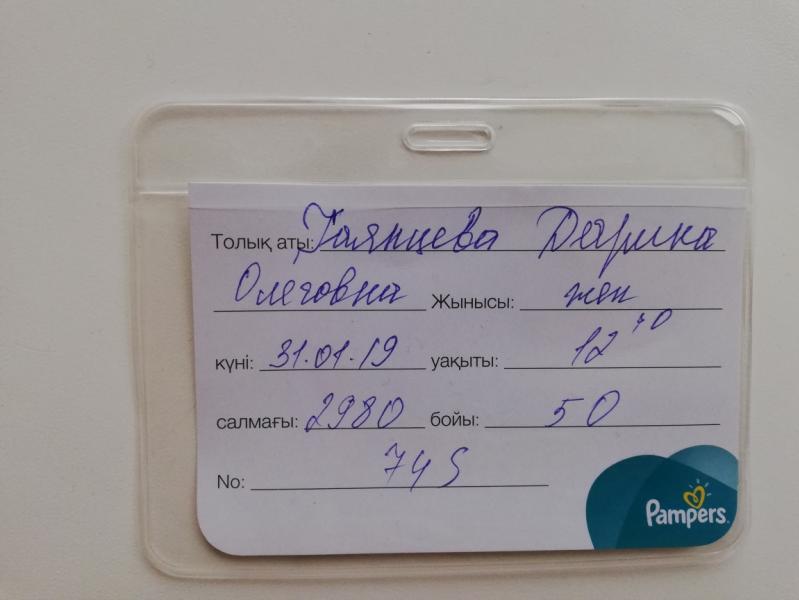 Толық аты: Уаянцева Дарина
Олеговна Жынысы: жен
күні: 31.01.19 уақыты: 12⁴⁰
салмағы: 2980 бойы: 50
No: 745
Pampers